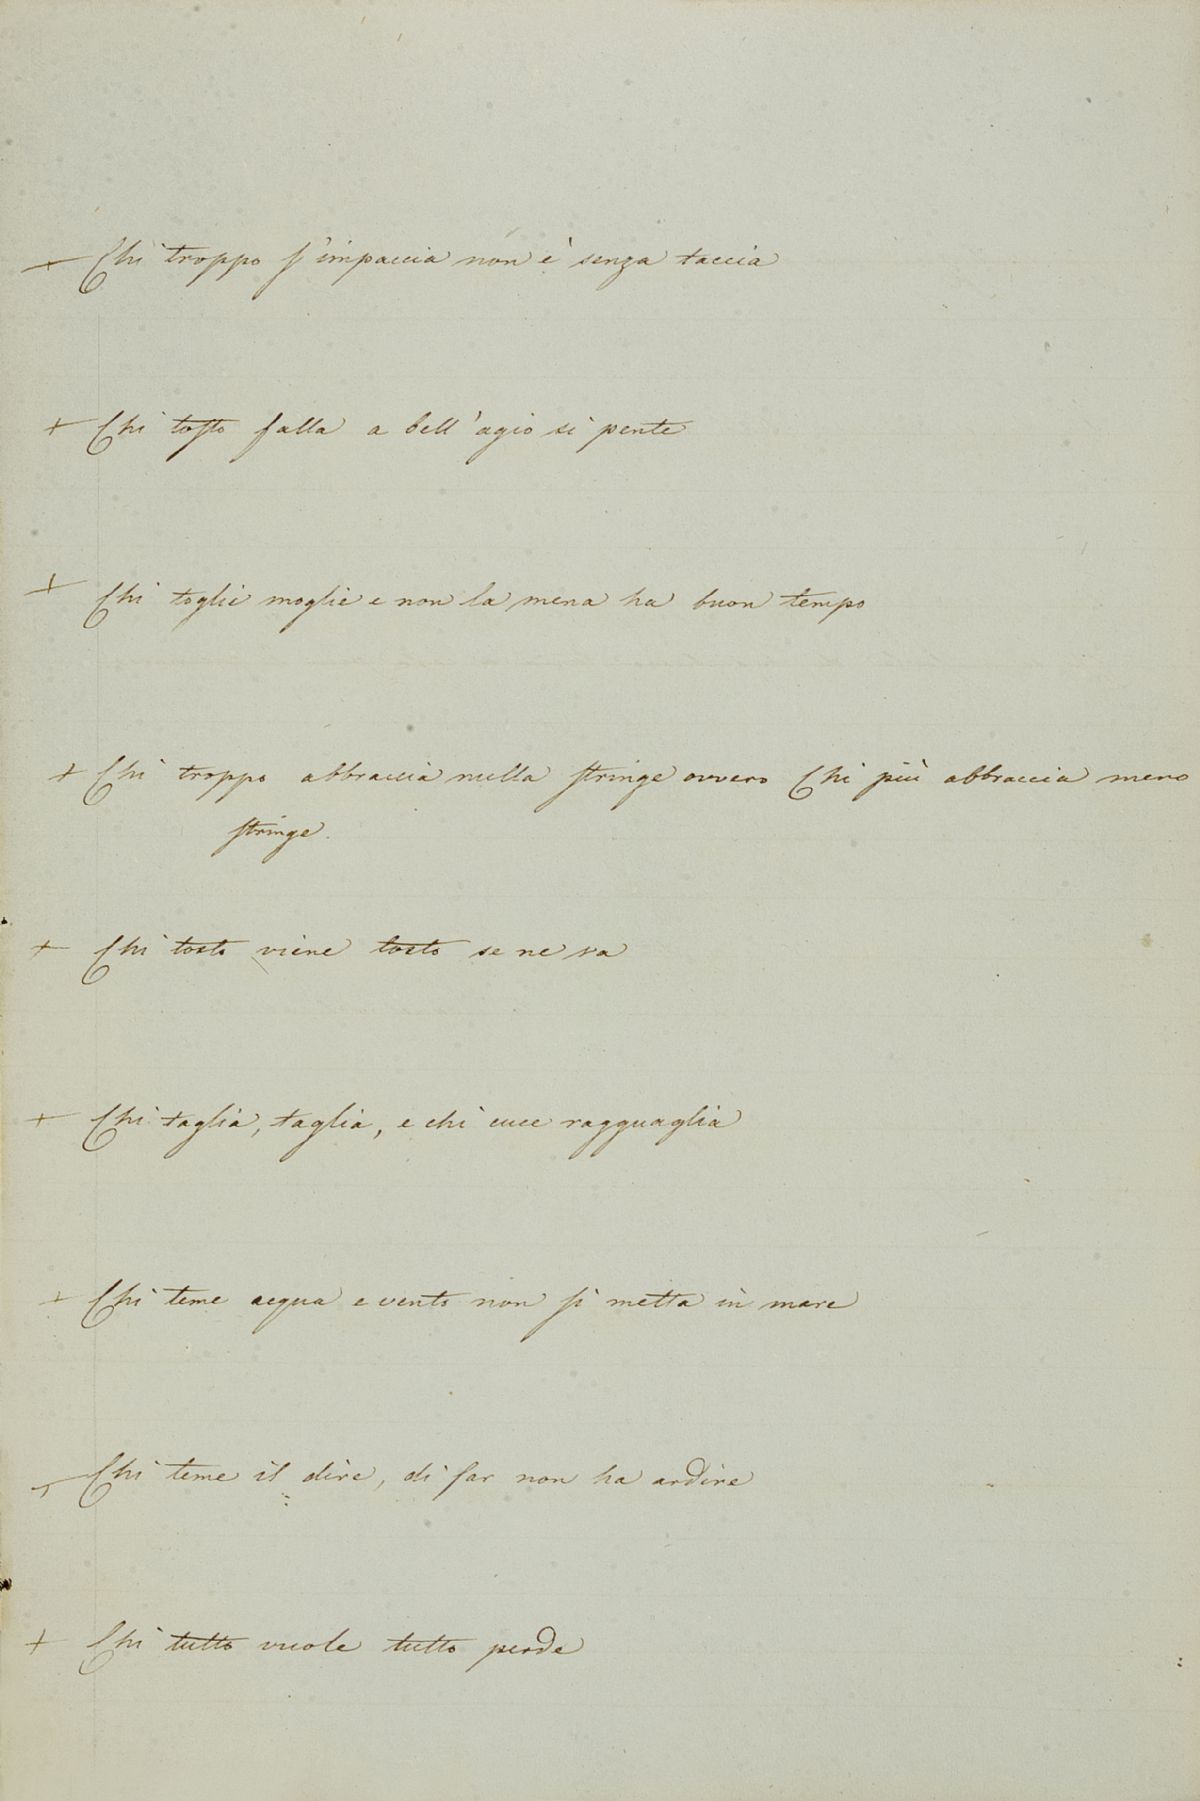 + Chi troppo s'impaccia non è senza taccia
+ Chi tosto falla a bell'agio si pente
+ Chi toglie moglie e non la mena ha buon tempo
+ Chi troppo abbraccia nulla stringe ovvero Chi più abbraccia meno
stringe.
+ Chi tosto viene tosto se ne va
+ Chi taglia, taglia, e chi cuce ragguaglia
+ Chi teme acqua e vento non si metta in mare
+ Chi teme il dire, di far non ha ardire
+ Chi tutto vuole tutto perde